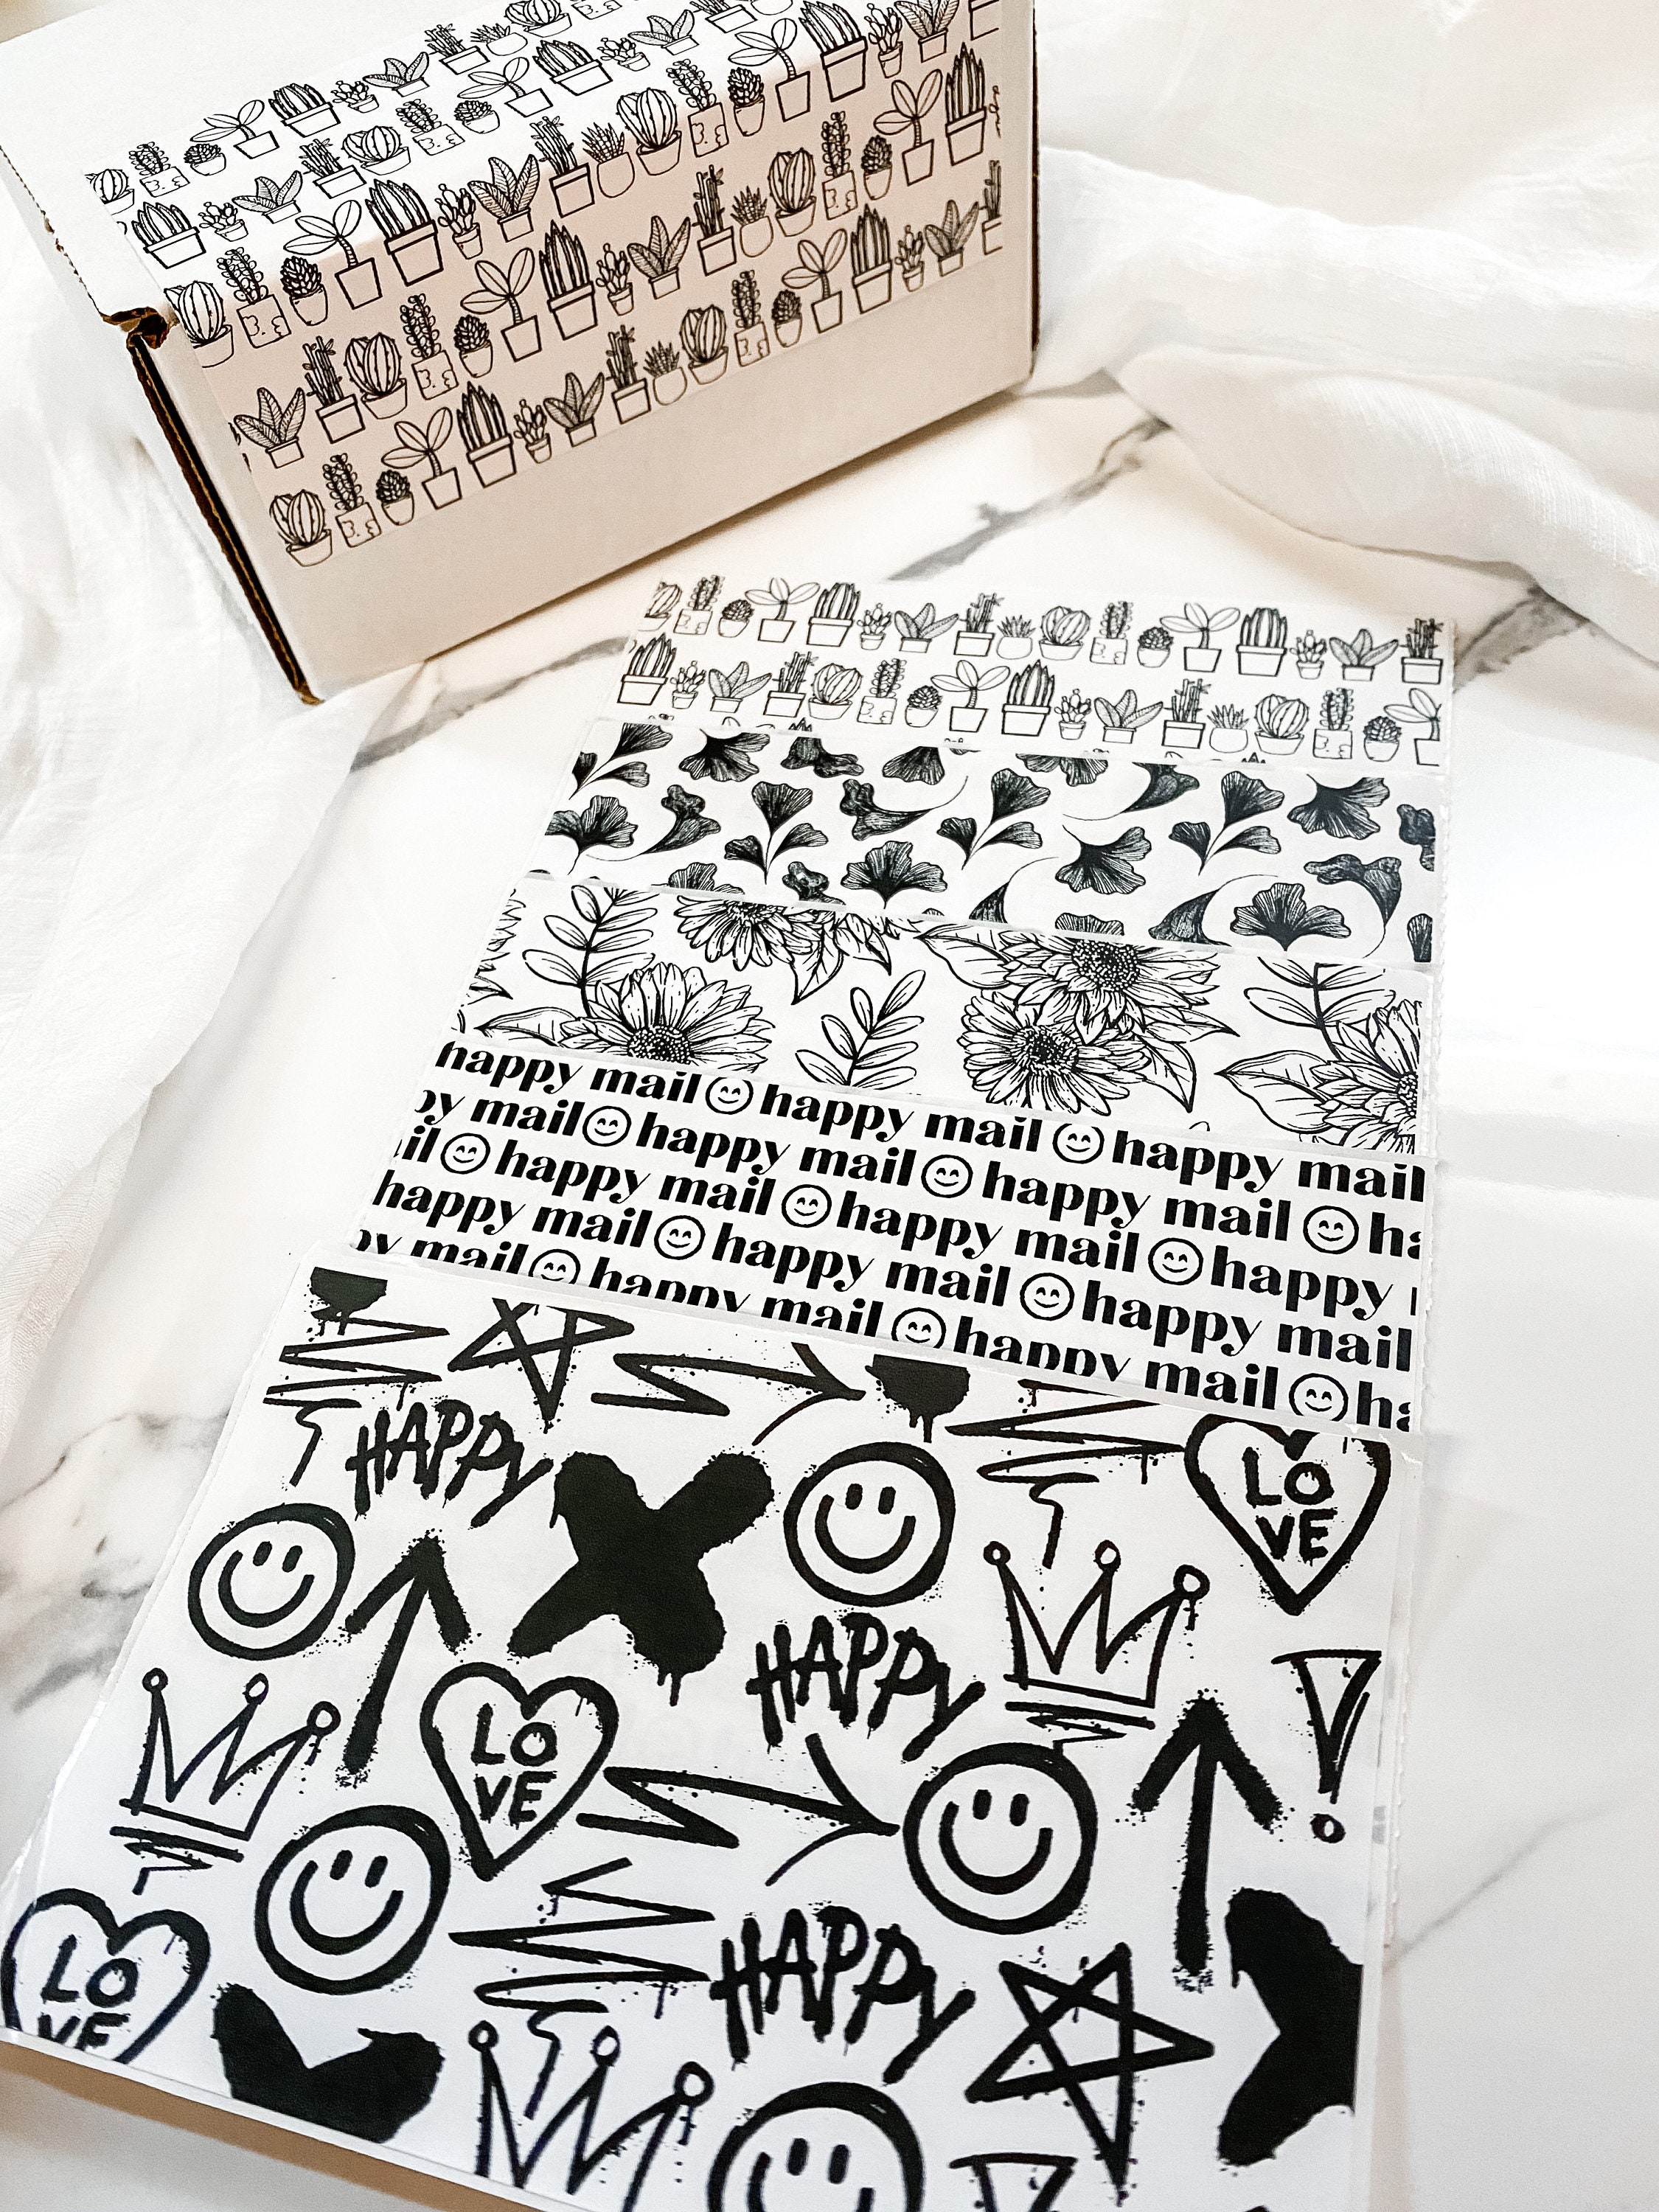 happy mail happy mail happy mail
py mail happy mail happy mail ha
il happy mail happy mail happy
happy mail happy mail happy mail
py mail happy mail happy mail ha
HAPPY
LO
VE
HAPPY
LO
VE
HAPPY
LO
VE